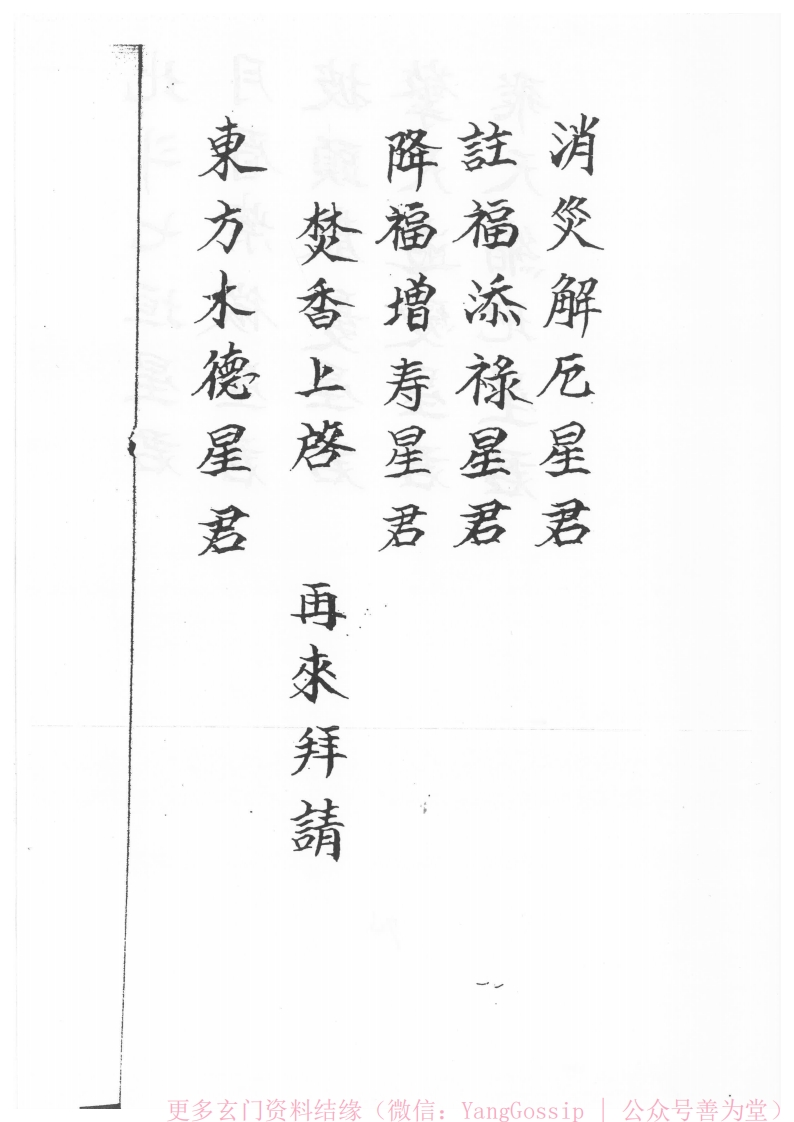 消災解厄星君
註福添祿星君
降福增寿星君
焚香上啓 再來拜請
東方木德星君
更多玄门资料结缘（微信：YangGossip | 公众号善为堂）